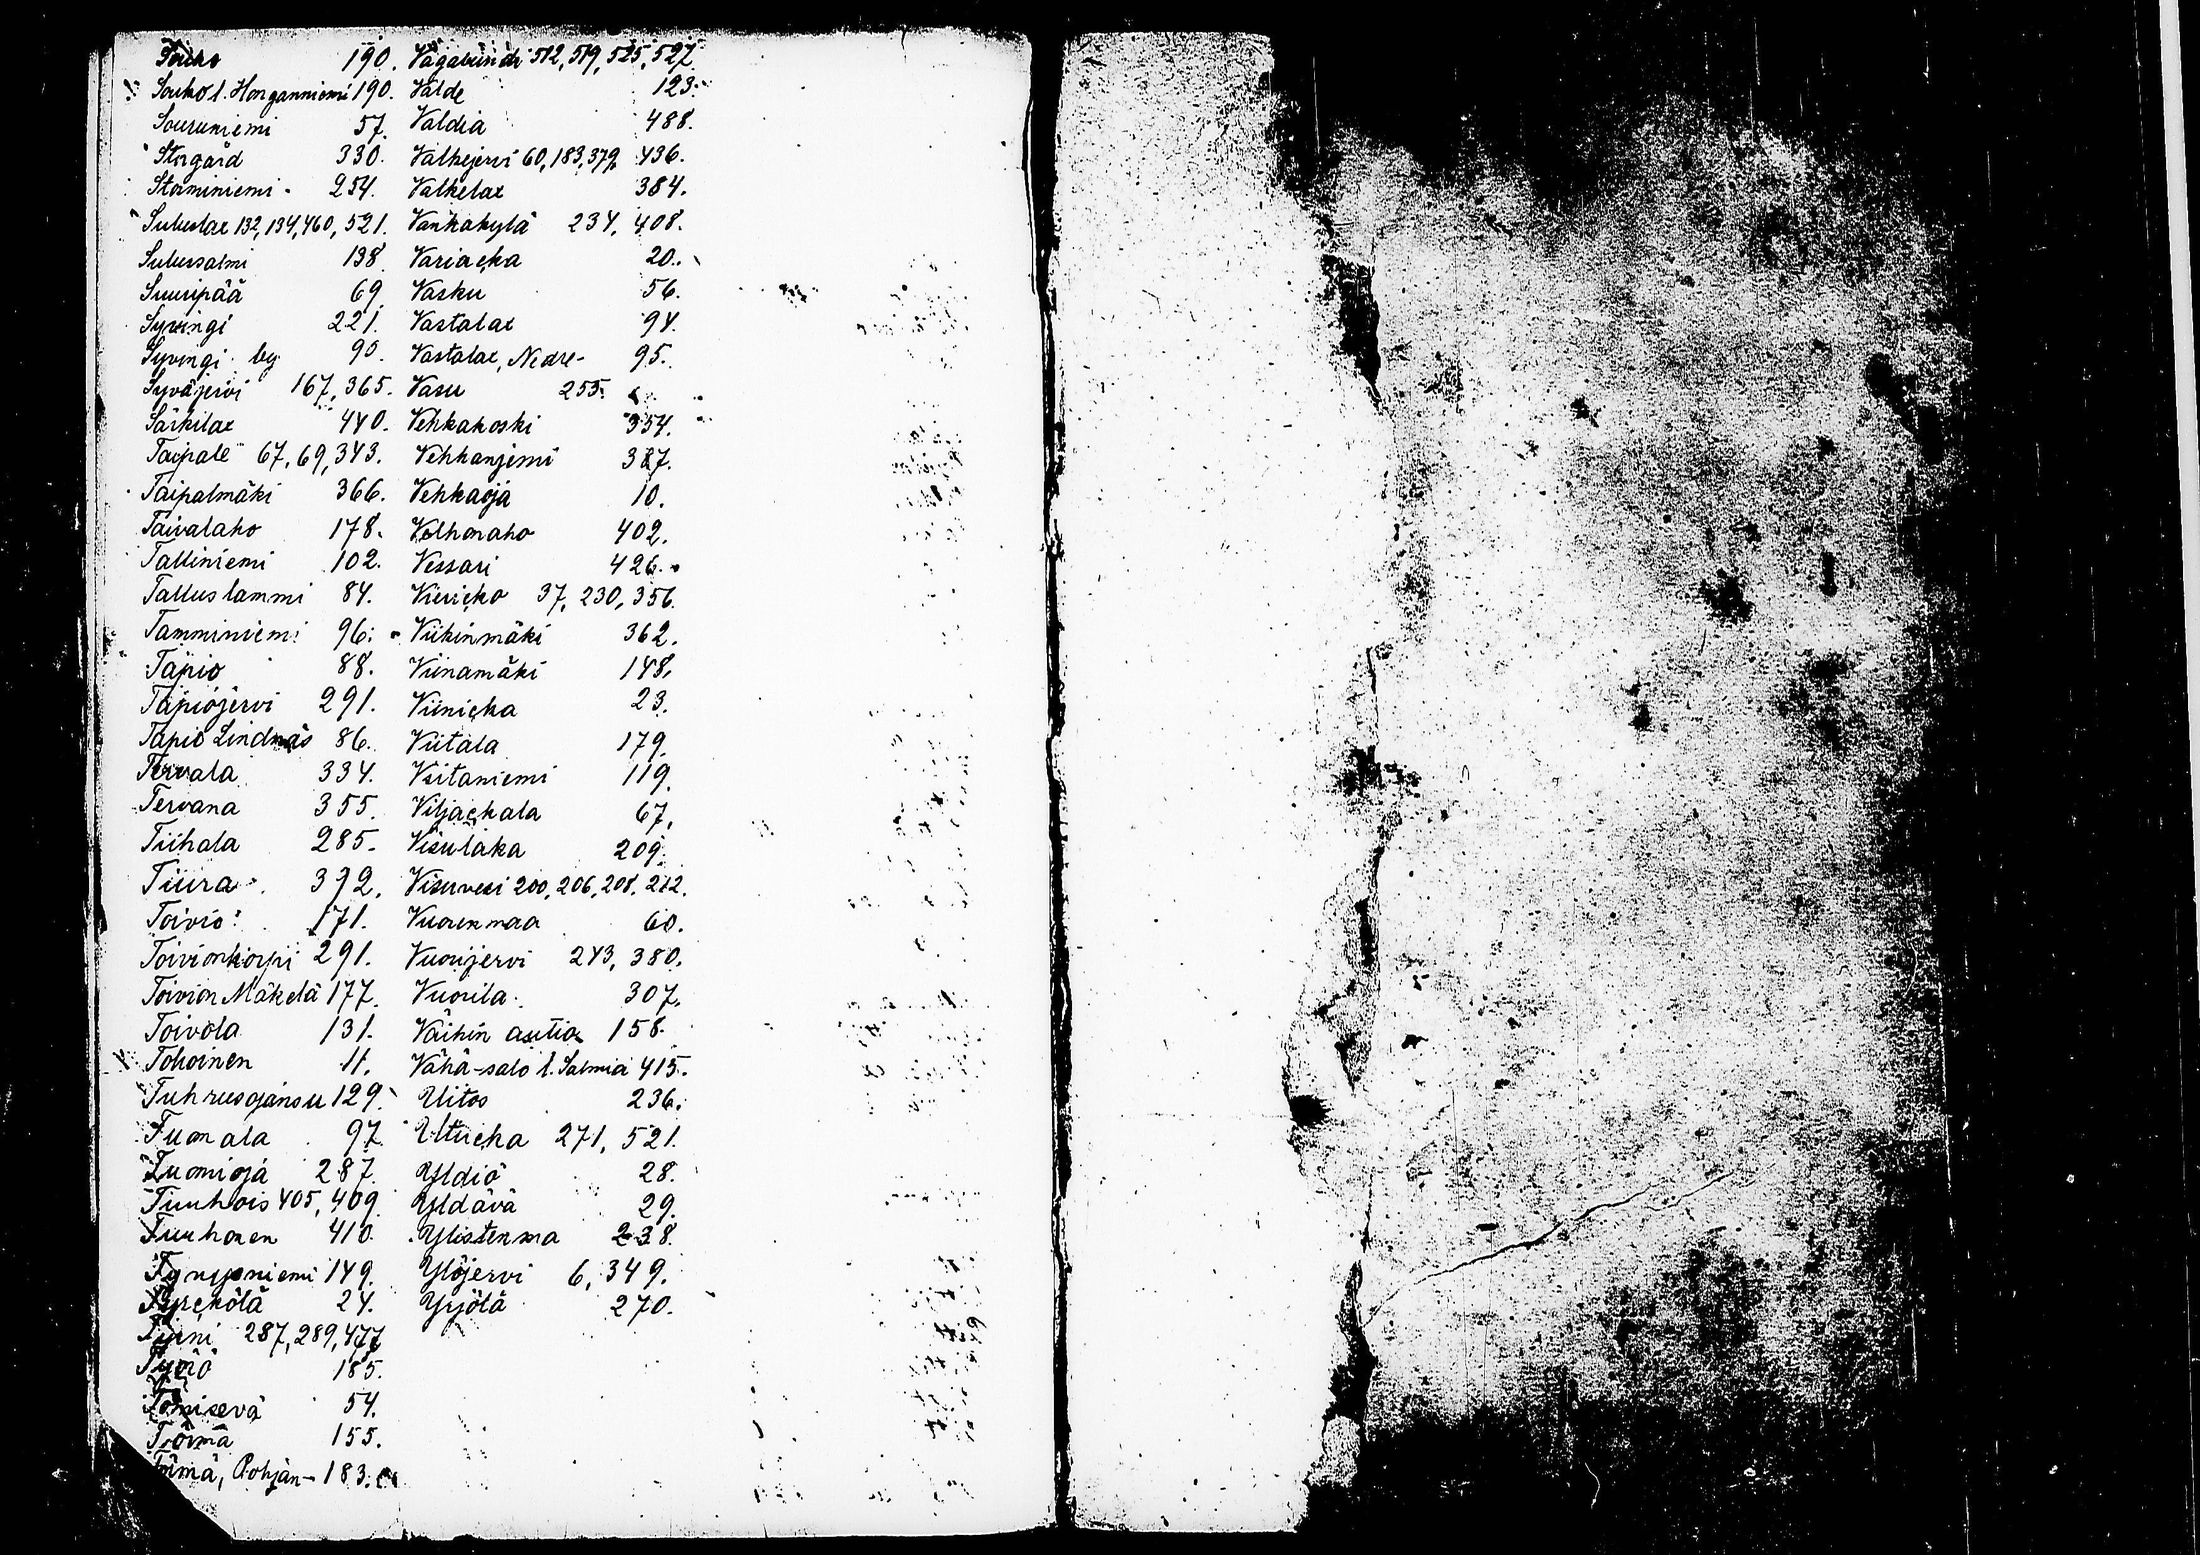 Souko 190.
Souko l. Honganniemi 190.
Souruniemi 57.
Storgård 330.
Storminiemi 254.
Suluslax 132, 134, 460, 521.
Sulussalmi 138
Suuripää 69.
Syvingi 221.
Syvingi by 90.
Syväjervi 167, 365.
Särkilax 440.
Taipale 67, 69, 343.
Taipalmäki 366.
Taivalaho 178.
Talliniemi 102.
Talluslammi 84.
Tamminiemi 96.
Tapio 88.
Tapiojervi 291.
Tapio Lindnäs 86.
Tervala 334.
Tervana 355.
Tiihala 285.
Tiura 392.
Toivio 171.
Toivionkorpi 291.
Toivion Mäkelä 177.
Toivola 131.
Tokoinen 11.
Tuhrusojansu 129.
Tuomala 97.
Tuomioja 287.
Tuuhois 405, 409.
Tuuhonen 410.
Tynypsniemi 149.
24.
Tyrni 287, 289, 477
Työrö 185.
Tömisevä 54.
Törmä 155.
Törmä, Pohjan- 183.
Vagabundi 512, 519, 525, 527.
Valde 123.
Valdia 488.
Valkejervi 60, 183, 379, 436.
Valkelax 384.
Vankakylä 234, 408.
Variacka 20.
Vasku 56.
Vastalax 94.
Vastalax, Nedre- 95.
Vasu 255.
Vehkakoski 354.
Vehkanjemi 387.
Vehkaoja 10.
Velhonaho 402.
Vessari 426.
Viericko 37, 230, 356.
Viikinmäki 362.
Viinamäki 148.
Viinicka 23.
Viitala 179.
Viitaniemi 119.
Viljackala 67.
Visulaka 209.
Visuvesi 200, 206, 208, 212.
Vuorenmaa 60.
Vuorijervi 243, 380.
Vuorila 307.
Väihin autio 158.
Vähä-salo l. Salmia 415.
Uitos 236.
Utricka 271, 521.
Yldiö 28.
Yldävä 29.
Ylistenma 238.
Ylöjervi 6, 349.
Yrjölä 270.